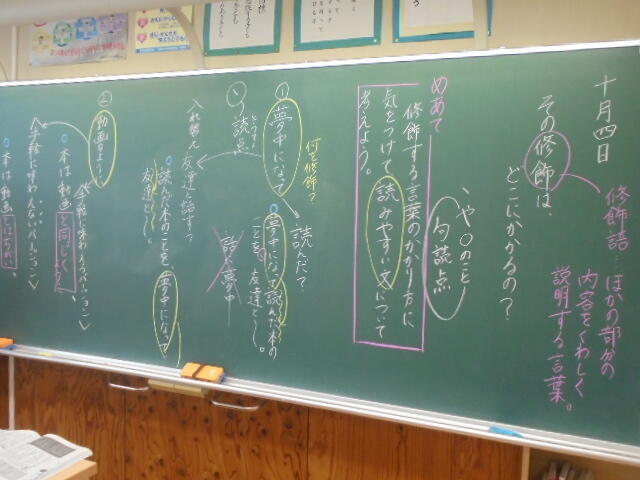 十月四日
その修飾は、
どこにかかるの？
修飾語…ほかの部分の
内容をくわしく
説明する言葉。
めあて
修飾する言葉のかかり方に
気をつけて読みやすい文について
考えよう。
、や。のこと
句読点
何を修飾？
①
夢中になって
読んだ？
夢中になって読んだ本の
ことを、友達と〜。
読点
入れ替え
友達と話す？
読んだ本のことを、夢中になって
友達と〜。
②
動画のように
＜手軽に味わえるバージョン＞
本は動画と同じように
＜手軽に味わえないバージョン＞
本は動画